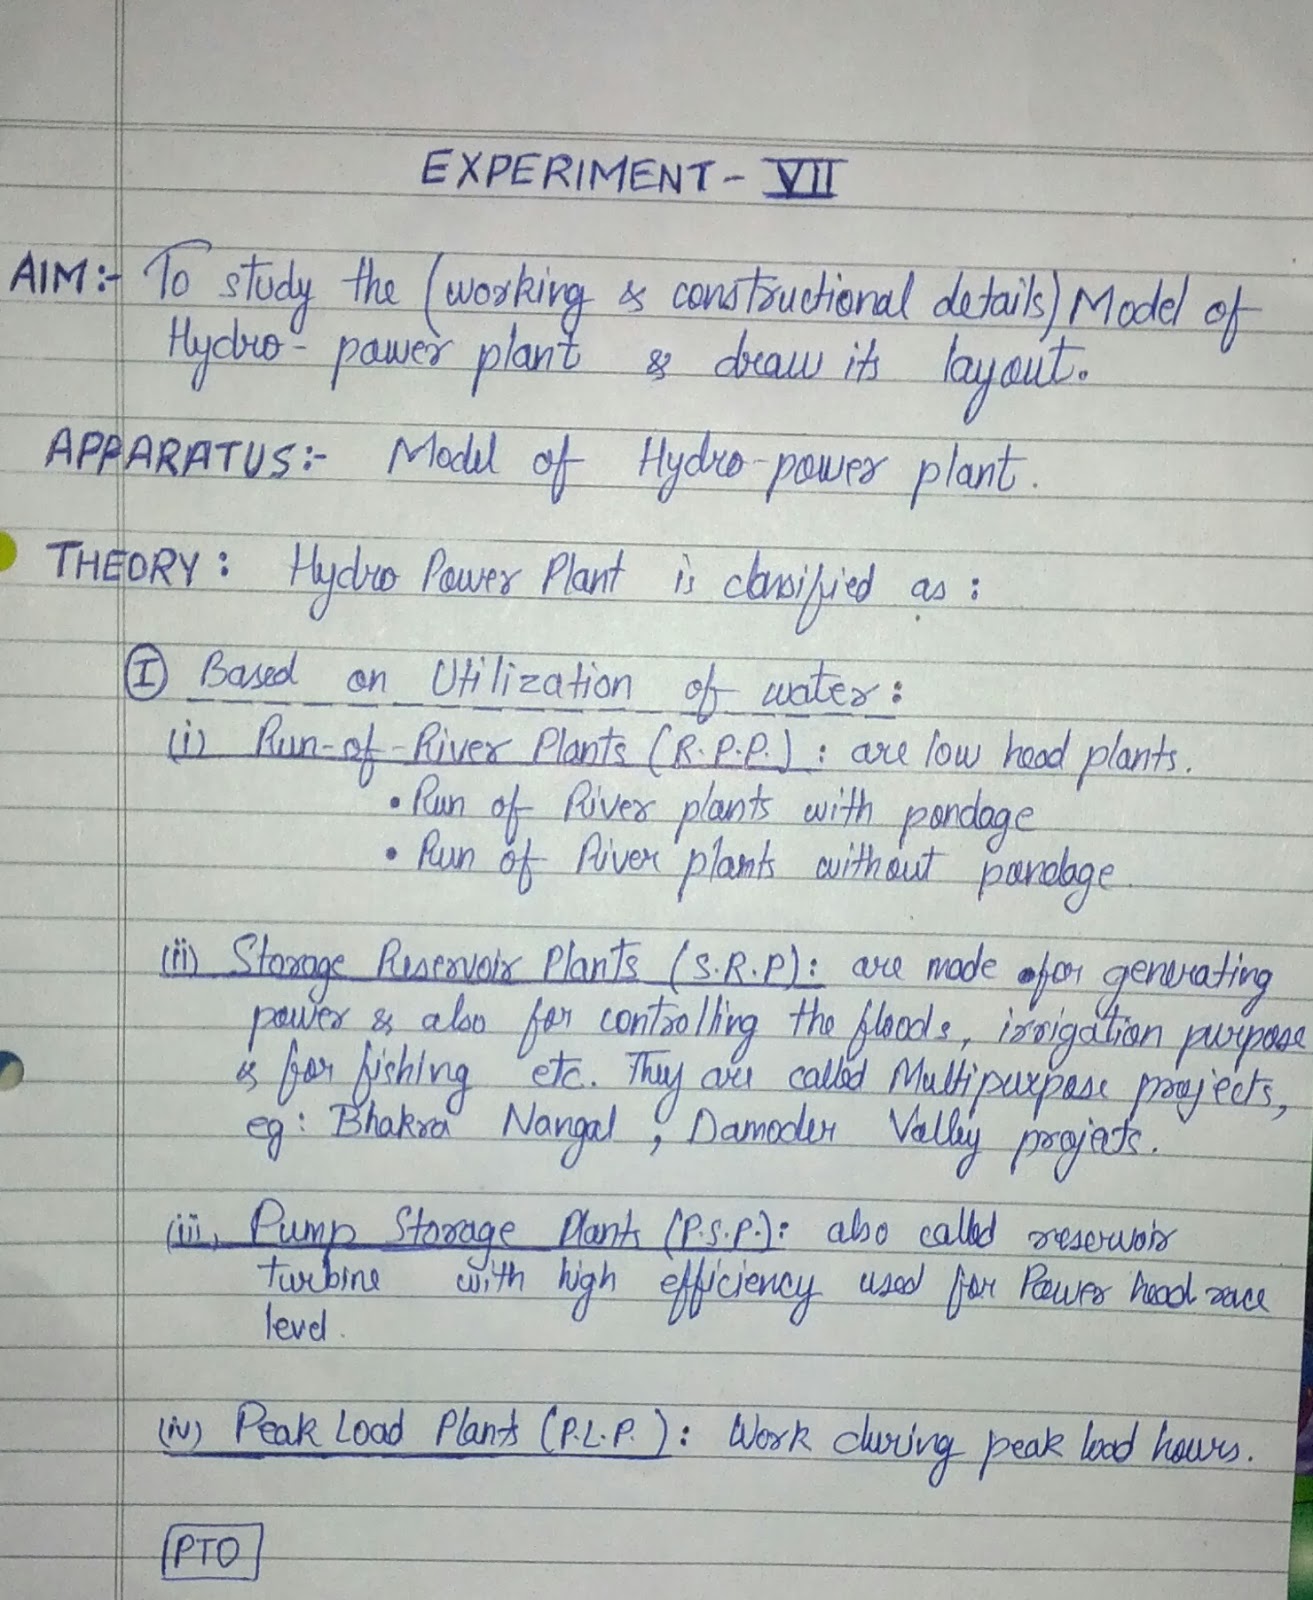 EXPERIMENT - VII
AIM:- To study the (working & constructional details) Model of
Hydro- power plant & draw its layout.
APPARATUS:- Model of Hydro-power plant.
THEORY: Hydro Power Plant is classified as:
(I) Based on Utilization of water:
(i) Run-of-River Plants (R.P.P.): are low head plants.
• Run of River plants with pondage
• Run of River plants without pondage
(ii) Storage Reservoir Plants (S.R.P): are made for generating
power & also for controlling the floods, irrigation purpose
& for fishing etc. They are called Multipurpose projects,
eg: Bhakra Nangal, Damoder Valley projects.
(iii) Pump Storage Plants (P.S.P.): also called reservoir
turbine with high efficiency used for Power head race
level.
(iv) Peak Load Plants (P.L.P.): Work during peak load hours.
PTO